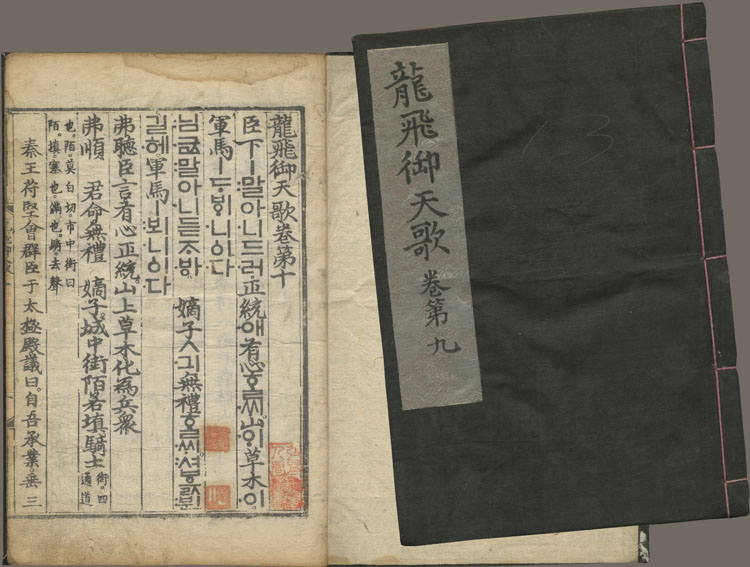 龍飛御天歌 卷第九
龍飛御天歌卷第十
臣下ㅣ말아니드러正統애有心ᄒᆞᆯᄊᆡ山ᄋᆡ草木이
軍馬ㅣᄃᆞᄫᆡ니ᅌᅵ다
님긊말아니듣ᄌᆞᄫᅡ 嫡子ㅅ긔無禮ᄒᆞᆯᄊᆡ셔ᄫᅳᆳ뷘
길헤軍馬ㅣ뵈니ᅌᅵ다
弗聽臣言有心正統山上草木化為兵衆
弗順 君命無禮 嫡子城中街陌若塡騎士 街。四通道
也。陌。莫白切。市中街曰
陌。塡。塞也。滿也。騎去聲
秦王苻堅會群臣于太極殿議曰。自吾承業。垂三